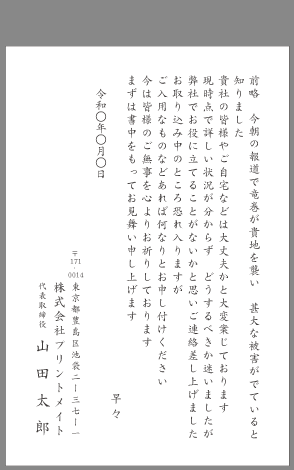 前略　今朝の報道で竜巻が貴地を襲い　甚大な被害がでていると
知りました
貴社の皆様やご自宅などは大丈夫かと大変案じております
現時点で詳しい状況が分からず　どうするべきか迷いましたが
弊社でお役に立てることがないかと思いご連絡差し上げました
お取り込み中のところ恐れ入りますが
ご入用なものなどあれば何なりとお申し付けください
今は皆様のご無事を心よりお祈りしております
まずは書中をもってお見舞い申し上げます
早々
令和〇年〇月〇日
〒171-0014
東京都豊島区池袋二ー三七ー一
株式会社プリントメイト
代表取締役　山田太郎